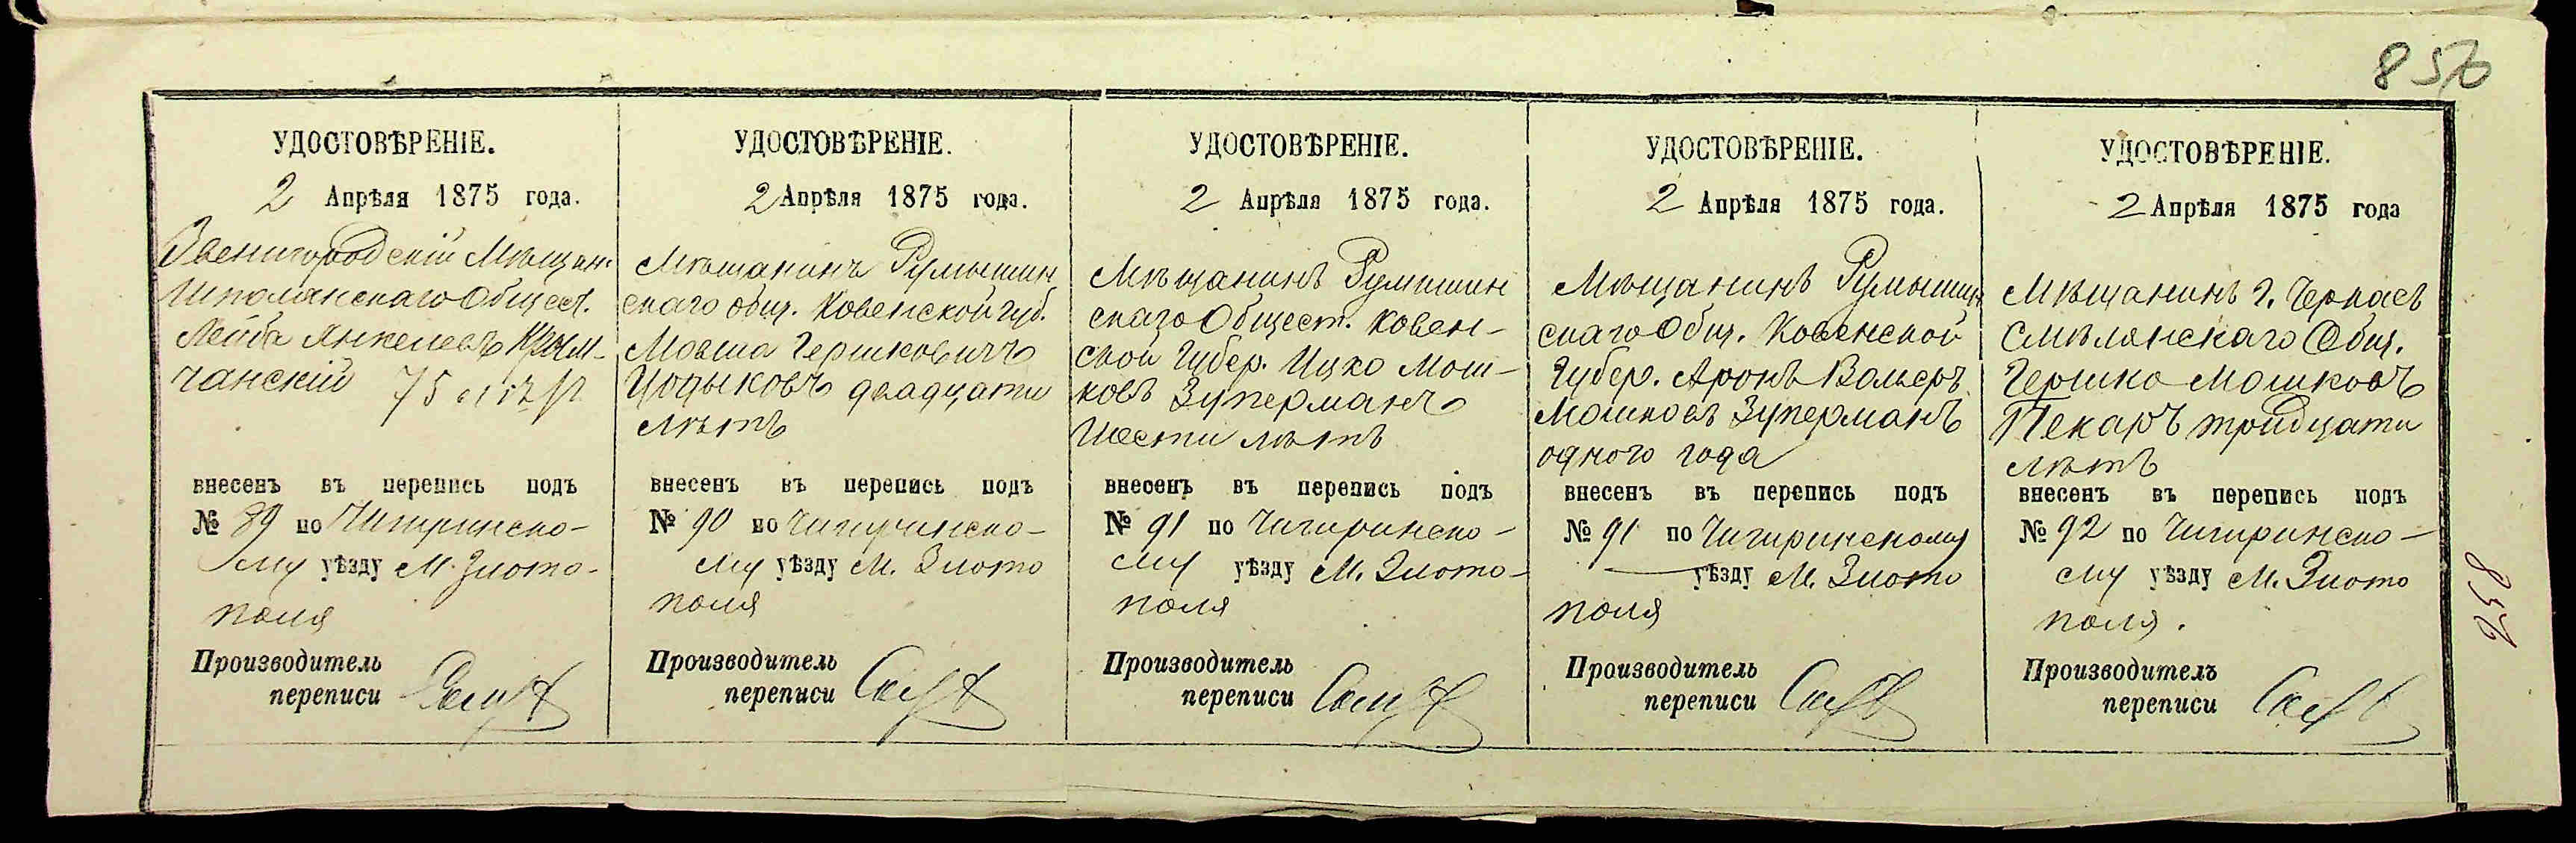 856
УДОСТОВѢРЕНІЕ.
2 Апрѣля 1875 года.
Звенигородскій Мѣщан.
Шполянскаго Общест.
Лейба Янкелевъ Крым-
чанскій 75
внесенъ въ перепись подъ
№ 89 по Чигиринско-
му уѣзду М. Злото-
поля
Производитель
переписи
УДОСТОВѢРЕНІЕ.
2 Апрѣля 1875 года.
Мѣщанинъ Румышин
скаго общ. Ковенской губ.
Мовша Гершковичъ
двадцати
лѣтъ
внесенъ въ перепись подъ
№ 90 по Чигиринско-
му уѣзду М. Злото
поля
Производитель
переписи
УДОСТОВѢРЕНІЕ.
2 Апрѣля 1875 года.
Мѣщанинъ Румышин
скаго Общест. Ковен-
ской Губер. Ицко Мош-
ковъ Зуперманъ
Шести лѣтъ
внесенъ въ перепись подъ
№ 91 по Чигиринско-
му уѣзду М. Злото-
поля
Производитель
переписи
УДОСТОВѢРЕНІЕ.
2 Апрѣля 1875 года.
Мѣщанинъ Румышин
скаго Общ. Ковенской
Губер. Аронъ Вольфъ
Мошковъ Зуперманъ
одного года
внесенъ въ перепись подъ
№ 91 по Чигиринскому
уѣзду М. Злото
поля
Производитель
переписи
УДОСТОВѢРЕНІЕ.
2 Апрѣля 1875 года
Мѣщанинъ г. Черкасъ
Смѣлянскаго Общ.
Гершко Мошковъ
Пекаръ тридцати
лѣтъ
внесенъ въ перепись подъ
№ 92 по Чигиринско-
му уѣзду М. Злото
поля.
Производитель
переписи
856